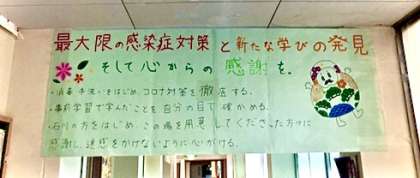 最大限の感染症対策と新たな学びの発見
そして心からの感謝を。
・消毒、手洗いをはじめ、コロナ対策を徹底する。
・事前学習で学んだことを自分の目で確かめる。
・石川の方をはじめ、この場を用意してくださった方々に
感謝し、迷惑をかけないように心がける。